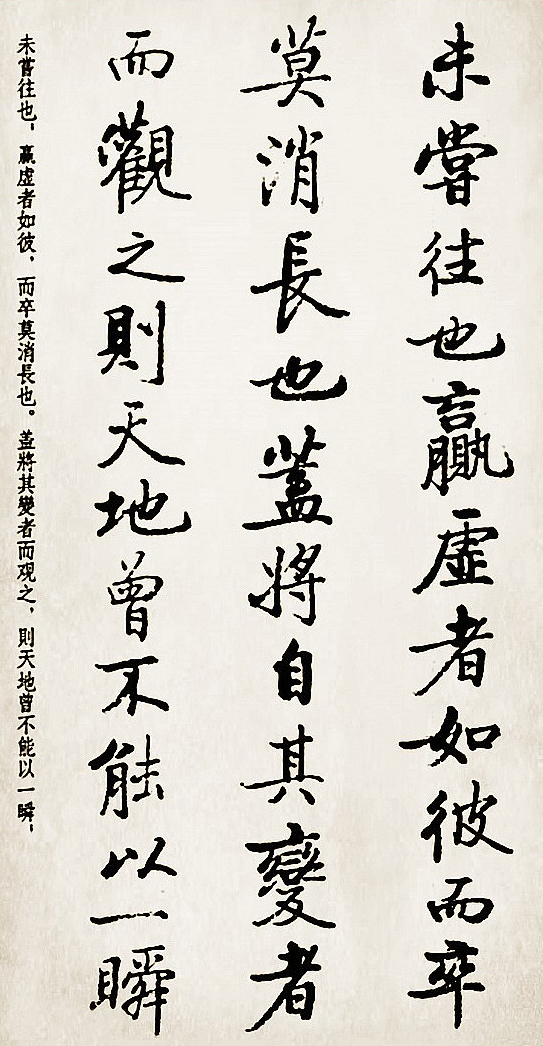 未嘗往也贏虛者如彼而卒
莫消長也蓋將自其變者
而觀之則天地曾不能以一瞬
未嘗往也，贏虛者如彼，而卒莫消長也。蓋將其變者而观之，則天地曾不能以一瞬，